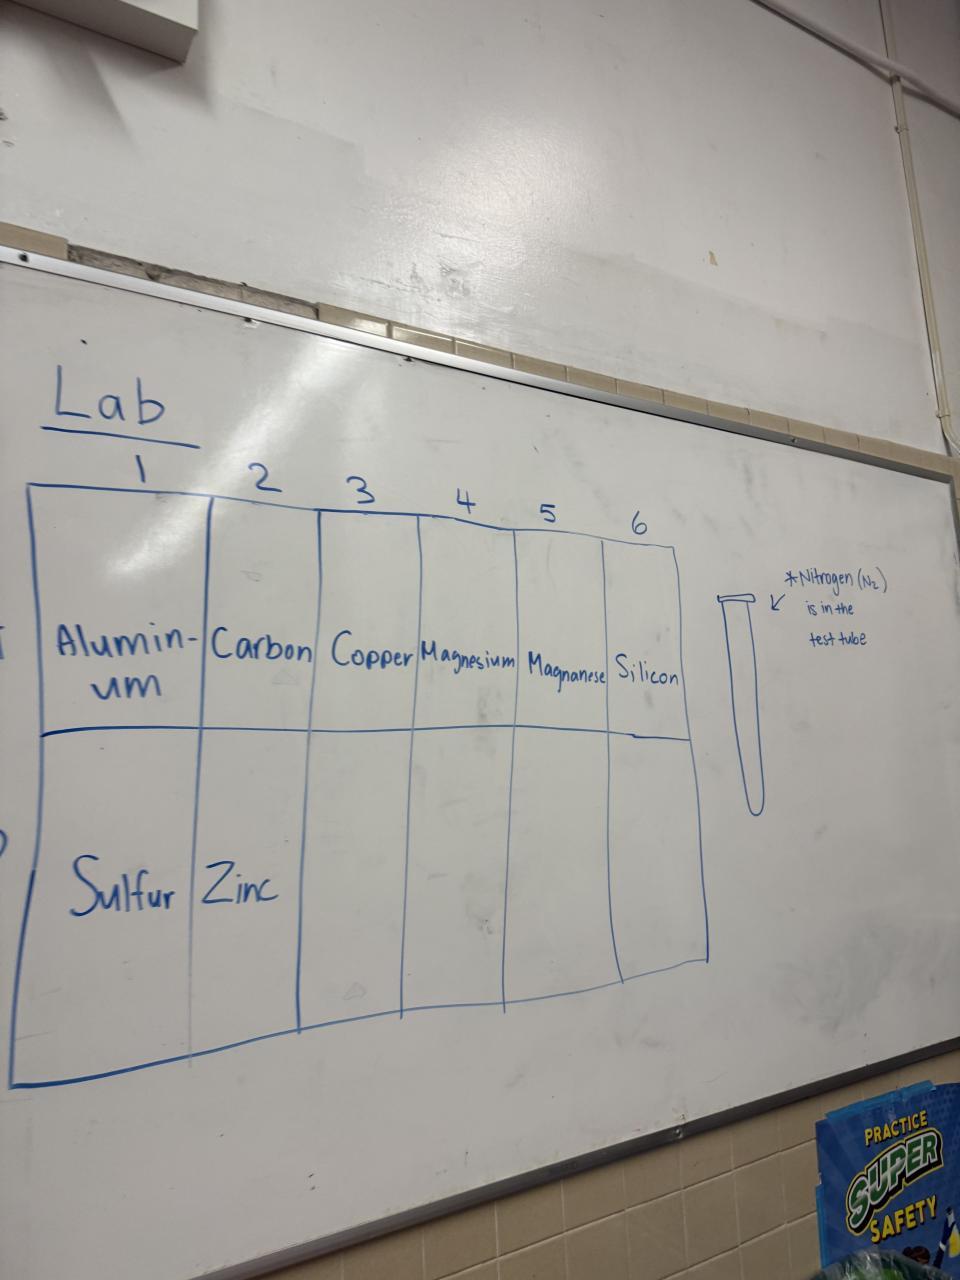 Lab
1 2 3 4 5 6
Alumin-
um
Carbon
Copper
Magnesium
Magnanese
Silicon
Sulfur
Zinc
*Nitrogen (N₂)
is in the
test tube
PRACTICE
SUPER
SAFETY